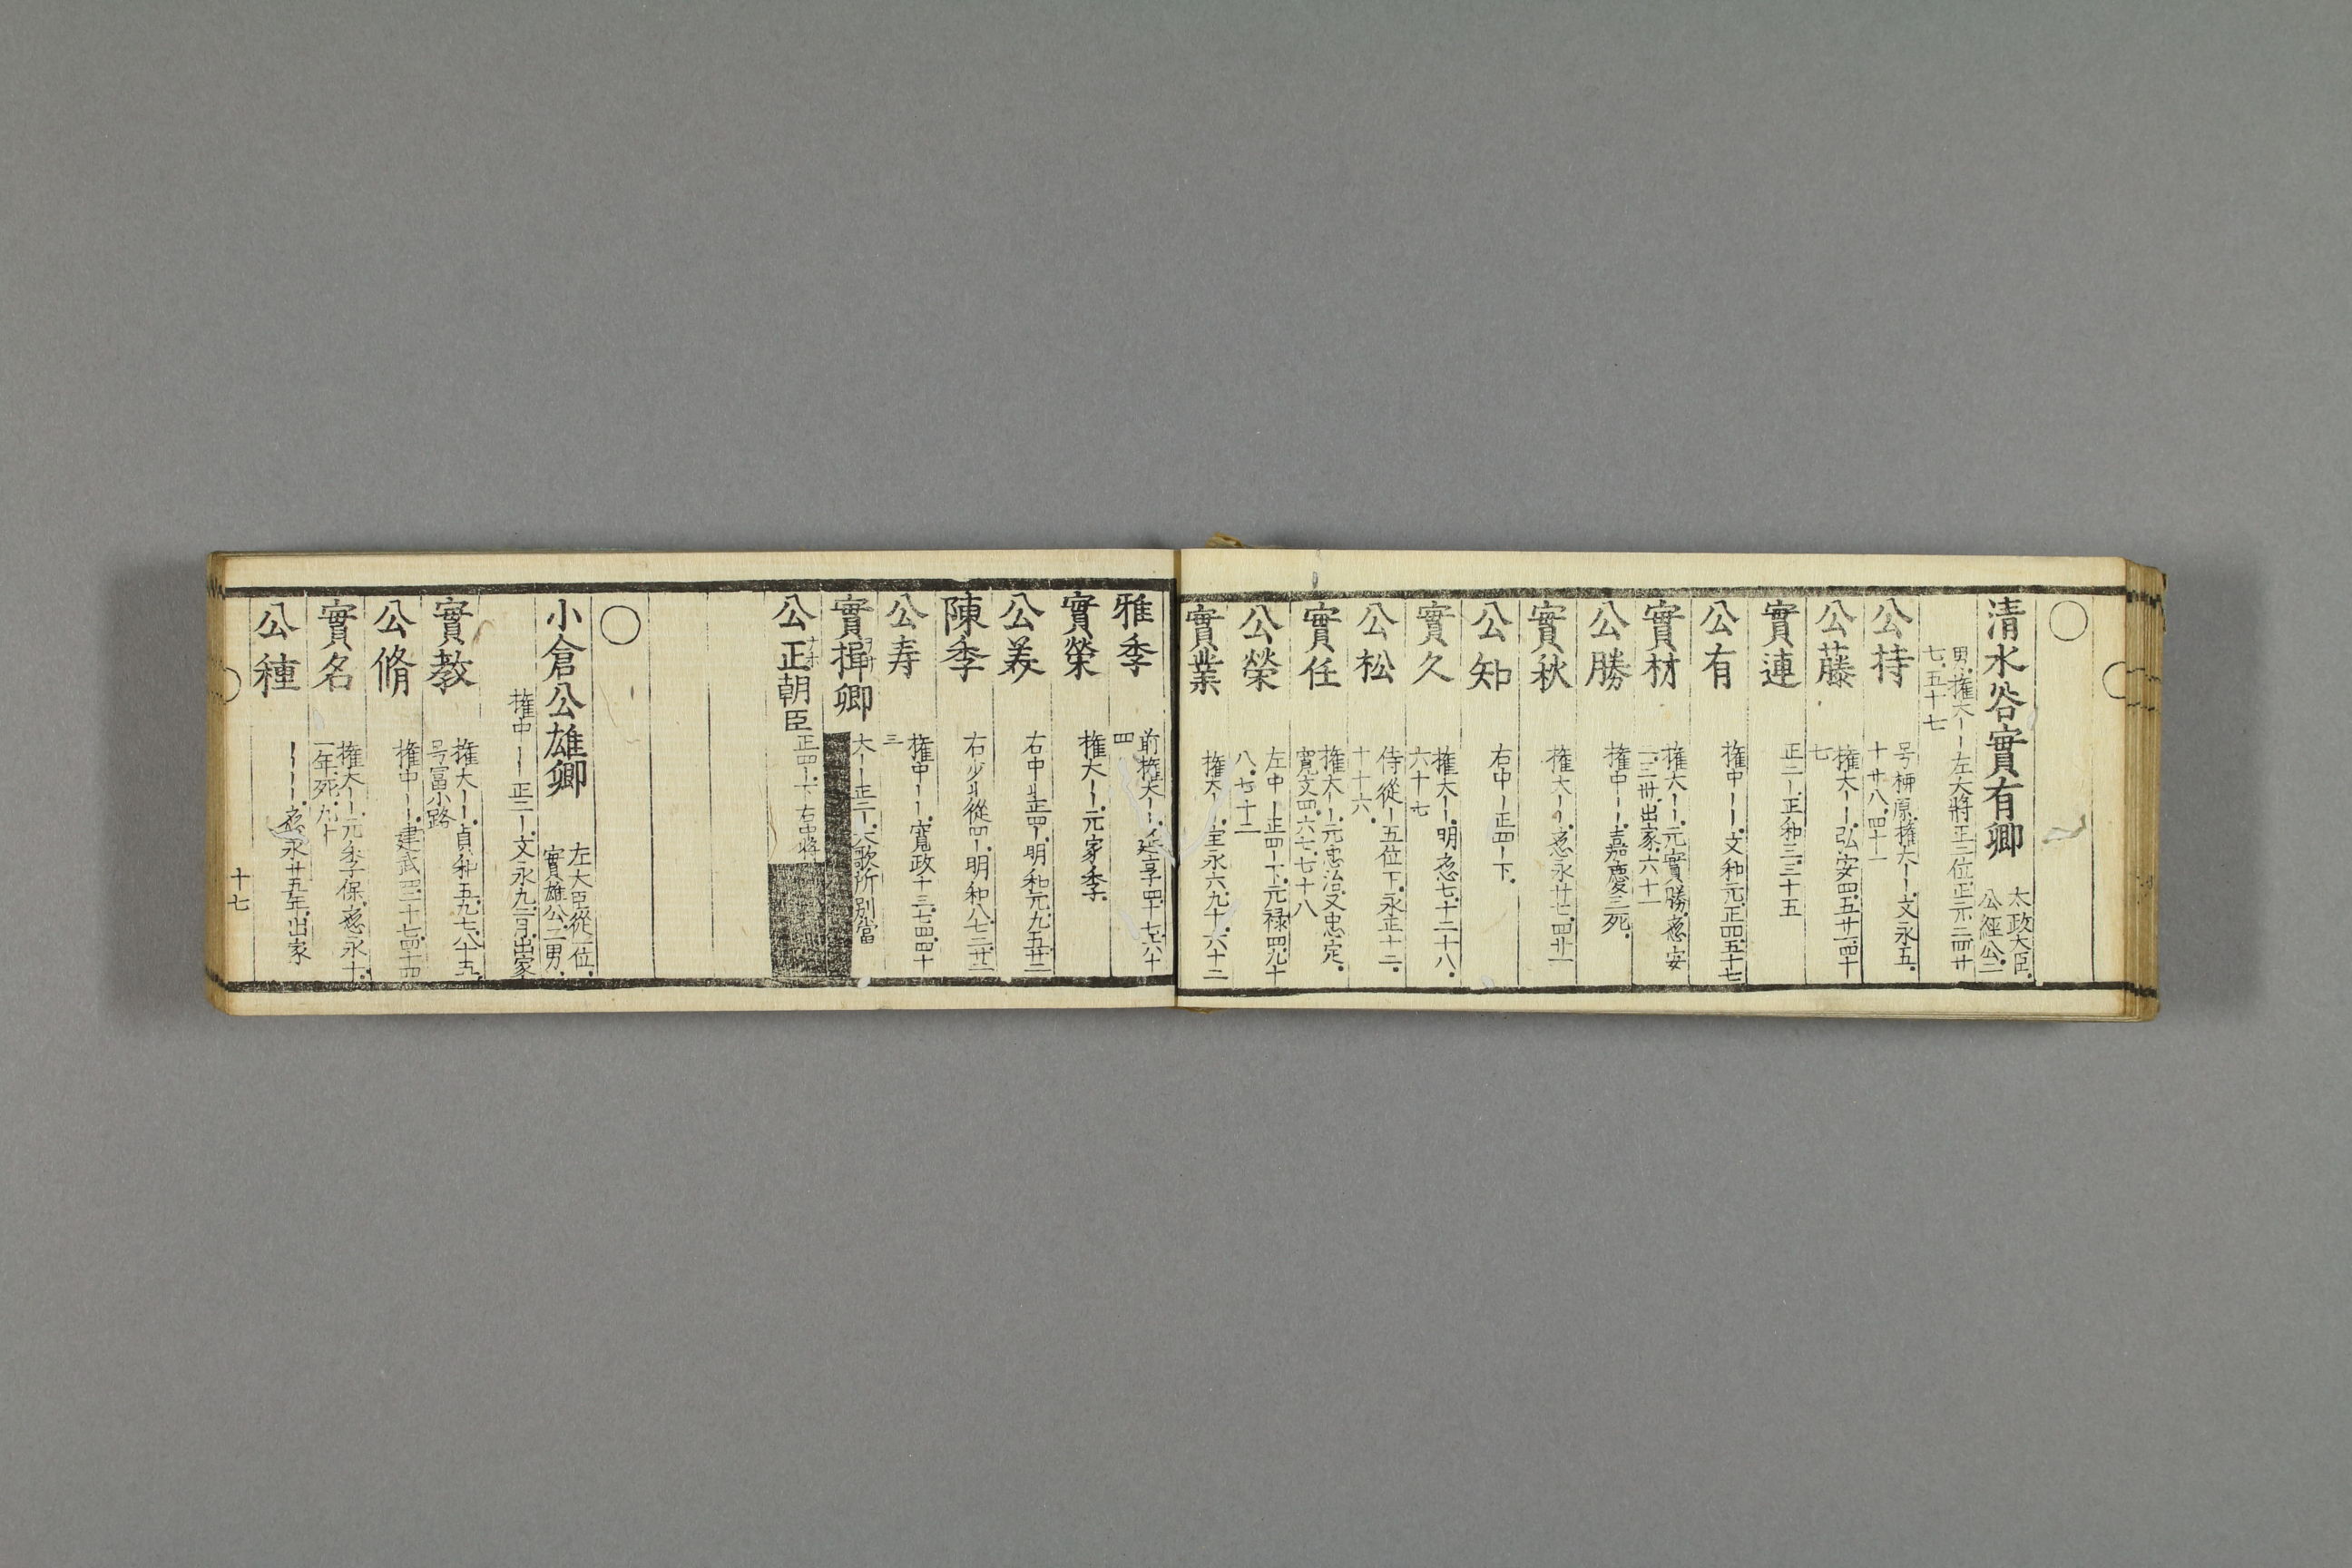 ○
清水谷實有卿
太政大臣
公經公二
男權大ー左大將正二位正元二四廿
七五十七
公持
号柳原權大ーー文永五
十廿八四十一
公藤
權大ーー弘安四五廿一四十
七
實連
正二ー正和三三十五
公有
權中ーー文和元正四五十七
實材
權大ーー元實勝應安
二三卅出家六十一
公勝
權中ーー嘉慶三死
實秋
權大ーー應永廿七四廿一
公知
右中ー正四ー下
實久
權大ーー明應七十二十八
六十七
公松
侍從ー五位下永正十二
十十六
實任
權大ーー元忠治又忠定
寛文四六七七十八
公榮
左中ー正四ー下元禄四九十
八七十二
實業
權大ーー宝永六九十六十二
雅季
前權大ーー延享四十七六十
四
實榮
權大ーー元家季
公美
右中ー正四ー明和元九五廿二
陳季
右少ー從四ー明和八七二廿二
公寿
權中ーー寛政十三七四四十
三
實揖卿
大ーー正二ー大歌所別當
公正朝臣
正四ー下右中將
○
小倉公雄卿
左大臣從一位
實雄公二男
權中ーー正二ー文永九二月出家
實教
權大ーー貞和五九七八十五
号冨小路
公脩
權中ーー建武四二十七四十四
實名
權大ーー元季保應永十
一年死九十
公種
ーーー應永廿五年出家
十七